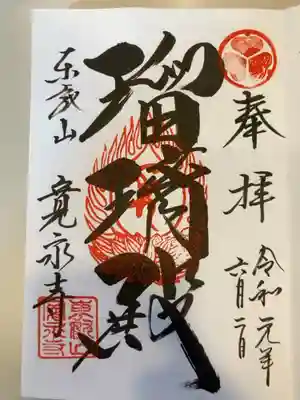 奉拝
令和元年
六月二日
瑠璃殿
東叡山 寛永寺
東叡山
寛永寺